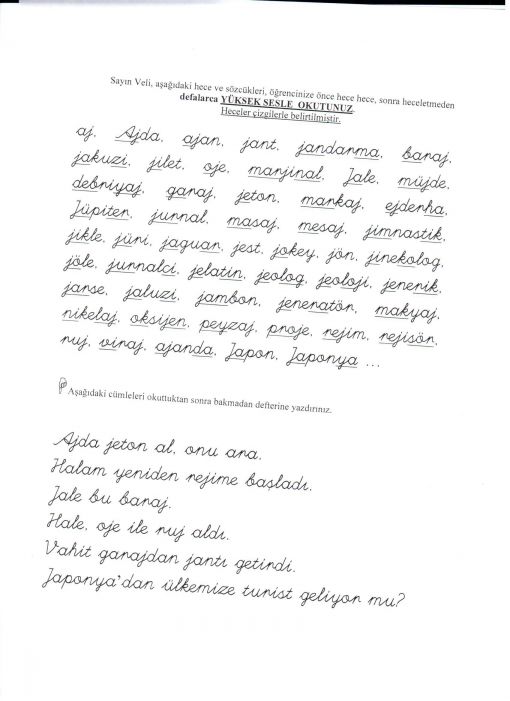 Sayın Veli, aşağıdaki hece ve sözcükleri, öğrencinize önce hece hece, sonra heceletmeden
defalarca YÜKSEK SESLE OKUTUNUZ.
Heceler çizgilerle belirtilmiştir.
aj, Ajda, ajan, jant, jandarma, baraj,
jakuzi, jilet, oje, marjinal, Jale, müjde,
debriyaj, garaj, jeton, markaj, ejderha,
Jüpiter, jurnal, masaj, mesaj, jimnastik,
jikle, jüri, jaguar, jest, jokey, jön, jinekolog,
jöle, jurnalci, jelatin, jeolog, jeoloji, jenerik,
jarse, jaluzi, jambon, jeneratör, makyaj,
nikelaj, oksijen, peyzaj, proje, rejim, rejisör,
ruj, viraj, ajanda, Japon, Japonya ...
Aşağıdaki cümleleri okuttuktan sonra bakmadan defterine yazdırınız.
Ajda jeton al, onu ara.
Halam yeniden rejime başladı.
Jale bu baraj.
Hale, oje ile ruj aldı.
Vahit garajdan jantı getirdi.
Japonya'dan ülkemize turist geliyor mu?